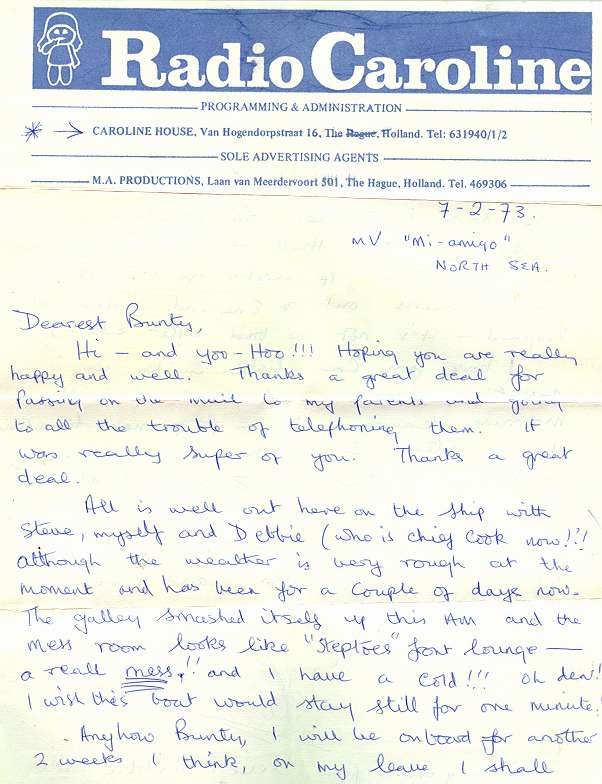 Radio Caroline
PROGRAMMING & ADMINISTRATION
CAROLINE HOUSE, Van Hogendorpstraat 16, The Hague, Holland. Tel: 631940/1/2
SOLE ADVERTISING AGENTS
M.A. PRODUCTIONS, Laan van Meerdervoort 501, The Hague, Holland. Tel. 469306
7-2-73.
MV "Mi-amigo"
NORTH SEA.
Dearest Bunty,
Hi - and Yoo-Hoo!!! Hoping you are really
happy and well. Thanks a great deal for
passing on the mail to my parents and going
to all the trouble of telephoning them. It
was really super of you. Thanks a great
deal.
All is well out here on the ship with
Steve, myself and Debbie (who is chief cook now!!!
although the weather is very rough at the
moment and has been for a couple of days now.
The galley smashed itself up this AM and the
mess room looks like "Steptoes" font lounge —
a reall mess,!! and I have a cold!!! Oh dear!
I wish this boat would stay still for one minute!
Anyhow Bunty, I will be onboard for another
2 weeks I think, on my leave I shall